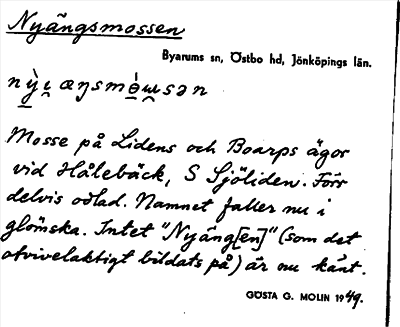 Nyängsmossen
Byarums sn, Östbo hd, Jönköpings län.
Mosse på Lidens och Boarps ägor
vid Hålebäck, S Sjöliden. Förr
delvis odlad. Namnet faller nu i
glömska. Intet "Nyäng[en]" (som det
otvivelaktigt bildats på) är nu känt.
GÖSTA G. MOLIN 1949.